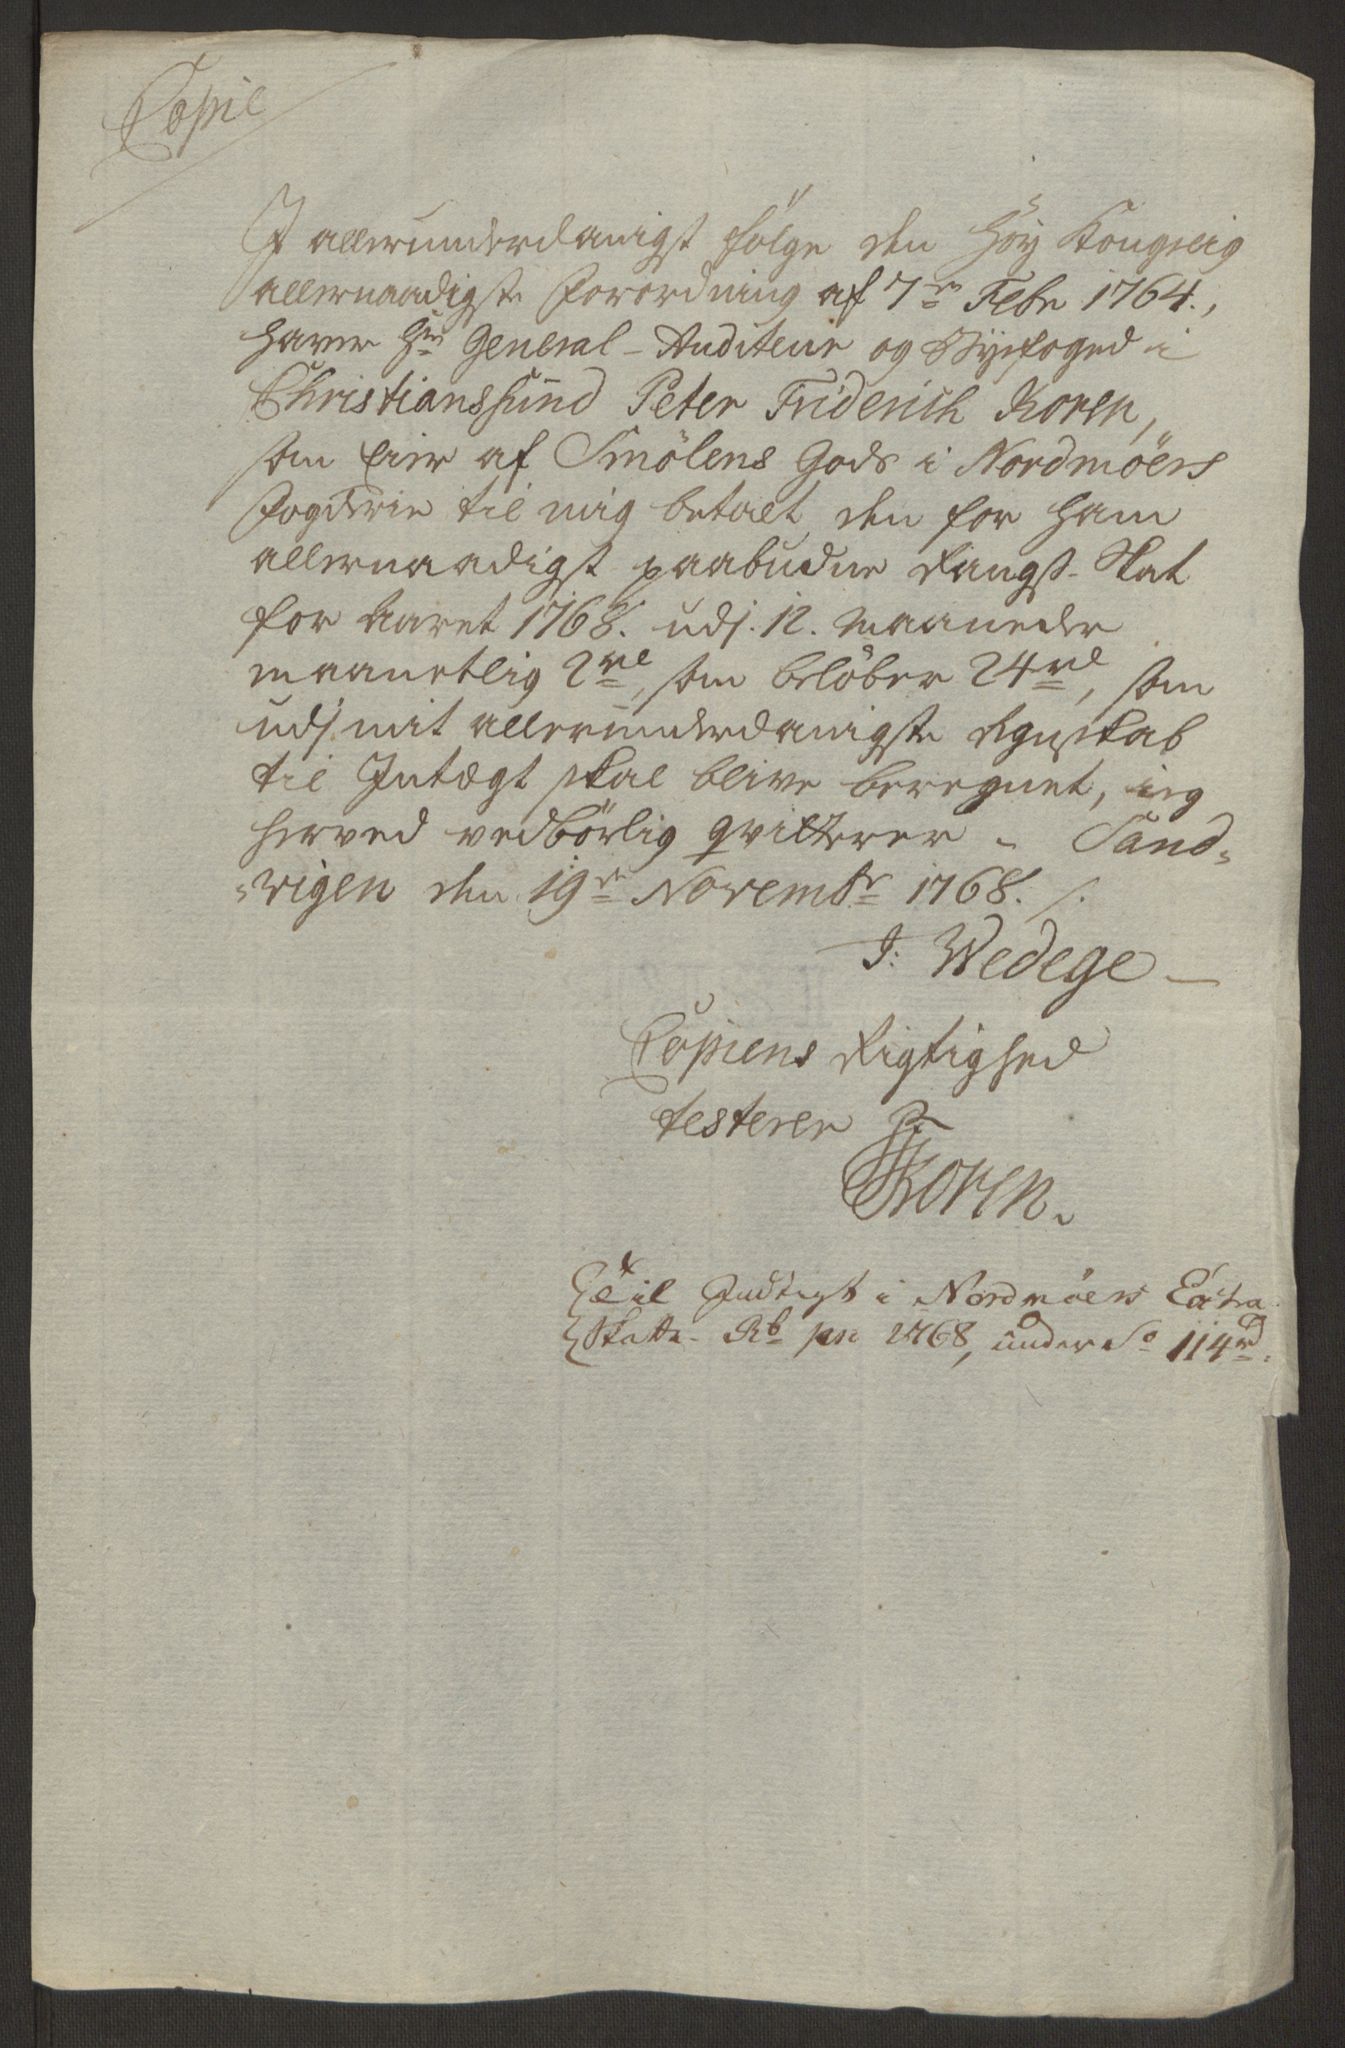 Copie
I allerunderdanigst følge den Høy Kongelig
allernaadigste Forordning af 7de Febr 1764.,
haver Hr General-Auditeur og Byefoged i
Christianssund Peter Friderich Koren,
som Eier af Smölens Gods i Nordmöers
Fogderie til mig betalt den for ham
allernaadigst paabudne Rangs-Skat
for Aaret 1768. udj. 12. Maaneder
maanetlig 2rd, som belöber 24rd, som
udj mit allerunderdanigste Regnskab
til Indtægt skal blive beregnet, ieg
herved vedbörlig qvitterer - Sand-
-vigen den 19de Novembr 1768. /.
J: Wedege
Copiens Rigtighed
testerer P:
F Koren.
Er til Indtegt i Nordmöers Extra
Skatte- Rb pro 1768, under No 114